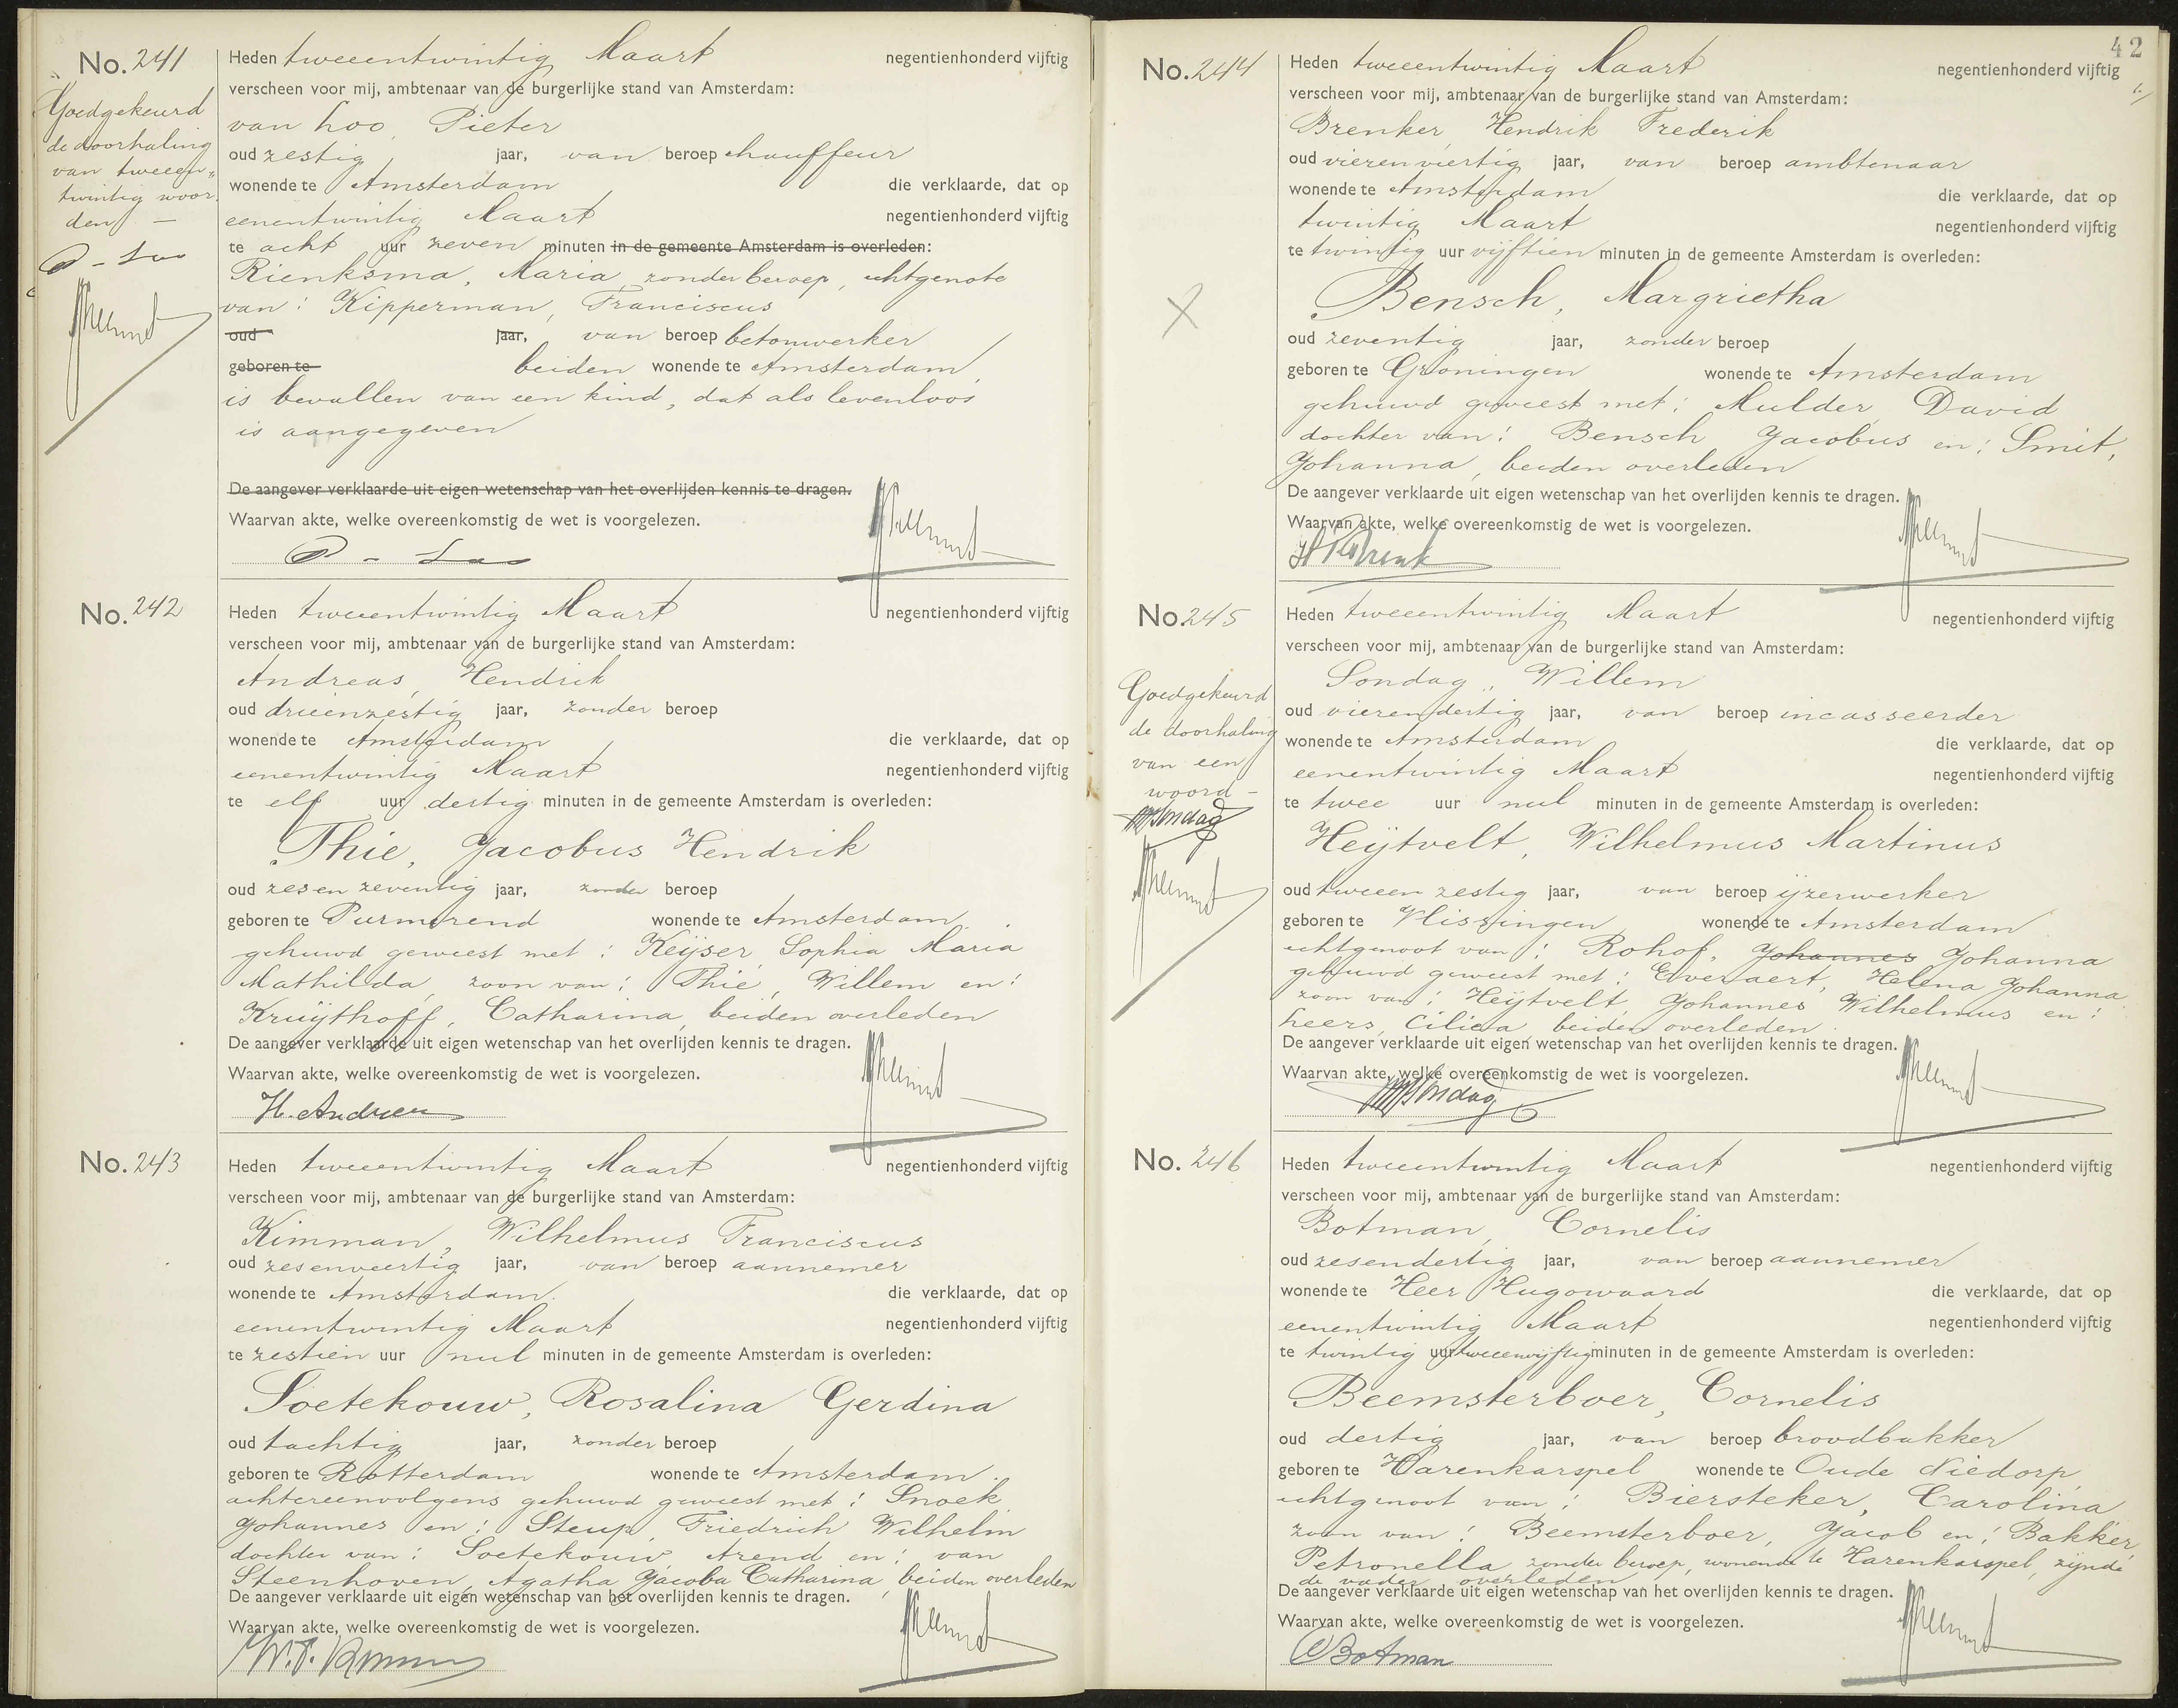 No. 241
Goedgekeurd
de doorhaling
van tweeen„
twintig woor„
den. —
Heden tweeentwintig Maart negentienhonderd vijftig
verscheen voor mij, ambtenaar van de burgerlijke stand van Amsterdam:
van Loo, Pieter
oud zestig jaar, van beroep chauffeur
wonende te Amsterdam die verklaarde, dat op
eenentwintig Maart negentienhonderd vijftig
te acht uur zeven minuten in de gemeente Amsterdam is overleden:
Rienksma, Maria, zonder beroep, echtgenote
van: Kipperman, Franciscus
oud jaar, van beroep betonwerker
geboren te beiden wonende te Amsterdam,
is bevallen van een kind, dat als levenloos
is aangegeven
De aangever verklaarde uit eigen wetenschap van het overlijden kennis te dragen.
Waarvan akte, welke overeenkomstig de wet is voorgelezen.
No. 242
Heden tweeentwintig Maart negentienhonderd vijftig
verscheen voor mij, ambtenaar van de burgerlijke stand van Amsterdam:
Andreas, Hendrik
oud drieenzestig jaar, zonder beroep
wonende te Amsterdam die verklaarde, dat op
eenentwintig Maart negentienhonderd vijftig
te elf uur dertig minuten in de gemeente Amsterdam is overleden:
Thie, Jacobus Hendrik
oud zesenzeventig jaar, zonder beroep
geboren te Purmerend wonende te Amsterdam,
gehuwd geweest met: Keijser, Sophia Maria
Mathilda, zoon van: Thie, Willem en:
Kruijthoff, Catharina, beiden overleden
De aangever verklaarde uit eigen wetenschap van het overlijden kennis te dragen.
Waarvan akte, welke overeenkomstig de wet is voorgelezen.
H. Andreas
No. 243
Heden tweeentwintig Maart negentienhonderd vijftig
verscheen voor mij, ambtenaar van de burgerlijke stand van Amsterdam:
Kimman, Wilhelmus Franciscus
oud zesenveertig jaar, van beroep aannemer
wonende te Amsterdam. die verklaarde, dat op
eenentwintig Maart negentienhonderd vijftig
te zestien uur nul minuten in de gemeente Amsterdam is overleden:
Soetekouw, Rosalina Gerdina
oud tachtig jaar, zonder beroep
geboren te Rotterdam wonende te Amsterdam.
achtereenvolgens gehuwd geweest met: Snoek,
Johannes en: Steup, Friedrich Wilhelm
dochter van: Soetekouw, Arend en: van
Steenhoven, Agatha Jacoba Catharina, beiden overleden
De aangever verklaarde uit eigen wetenschap van het overlijden kennis te dragen.
Waarvan akte, welke overeenkomstig de wet is voorgelezen.
42
No. 244
Heden tweeentwintig Maart negentienhonderd vijftig
verscheen voor mij, ambtenaar van de burgerlijke stand van Amsterdam:
Brenker Hendrik Frederik
oud vierenviertig jaar, van beroep ambtenaar
wonende te Amsterdam die verklaarde, dat op
twintig Maart negentienhonderd vijftig
te twintig uur vijftien minuten in de gemeente Amsterdam is overleden:
Bensch, Margrietha
oud zeventig jaar, zonder beroep
geboren te Groningen wonende te Amsterdam
gehuwd geweest met: Mulder, David
dochter van: Bensch, Jacobus en: Smit,
Johanna, beiden overleden
De aangever verklaarde uit eigen wetenschap van het overlijden kennis te dragen.
Waarvan akte, welke overeenkomstig de wet is voorgelezen.
No. 245
Goedgekeurd
de doorhaling
van een
woord —
Heden tweeentwintig Maart negentienhonderd vijftig
verscheen voor mij, ambtenaar van de burgerlijke stand van Amsterdam:
Sondag, Willem
oud vierendertig jaar, van beroep incasseerder
wonende te Amsterdam die verklaarde, dat op
eenentwintig Maart negentienhonderd vijftig
te twee uur nul minuten in de gemeente Amsterdam is overleden:
Heijtvelt, Wilhelmus Martinus
oud tweeenzestig jaar, van beroep ijzerwerker
geboren te Vlissingen wonende te Amsterdam
echtgenoot van: Rohof, Johannes Johanna
gehuwd geweest met: Everaert, Helena Johanna,
zoon van: Heijtvelt, Johannes Wilhelmus en:
Leers, Cilia, beiden overleden.
De aangever verklaarde uit eigen wetenschap van het overlijden kennis te dragen.
Waarvan akte, welke overeenkomstig de wet is voorgelezen.
WSondag
No. 246
Heden tweeentwintig Maart negentienhonderd vijftig
verscheen voor mij, ambtenaar van de burgerlijke stand van Amsterdam:
Botman, Cornelis
oud zesendertig jaar, van beroep aannemer
wonende te Heer Hugowaard die verklaarde, dat op
eenentwintig Maart negentienhonderd vijftig
te twintig uur tweeenvijftig minuten in de gemeente Amsterdam is overleden:
Beemsterboer, Cornelis
oud dertig jaar, van beroep broodbakker
geboren te Harenkarspel wonende te Oude Niedorp,
echtgenoot van: Biersteker, Carolina
zoon van: Beemsterboer, Jacob en: Bakker,
Petronella, zonder beroep, wonende te Harenkarspel, zijnde
de vader overleden
De aangever verklaarde uit eigen wetenschap van het overlijden kennis te dragen.
Waarvan akte, welke overeenkomstig de wet is voorgelezen.
CBotman